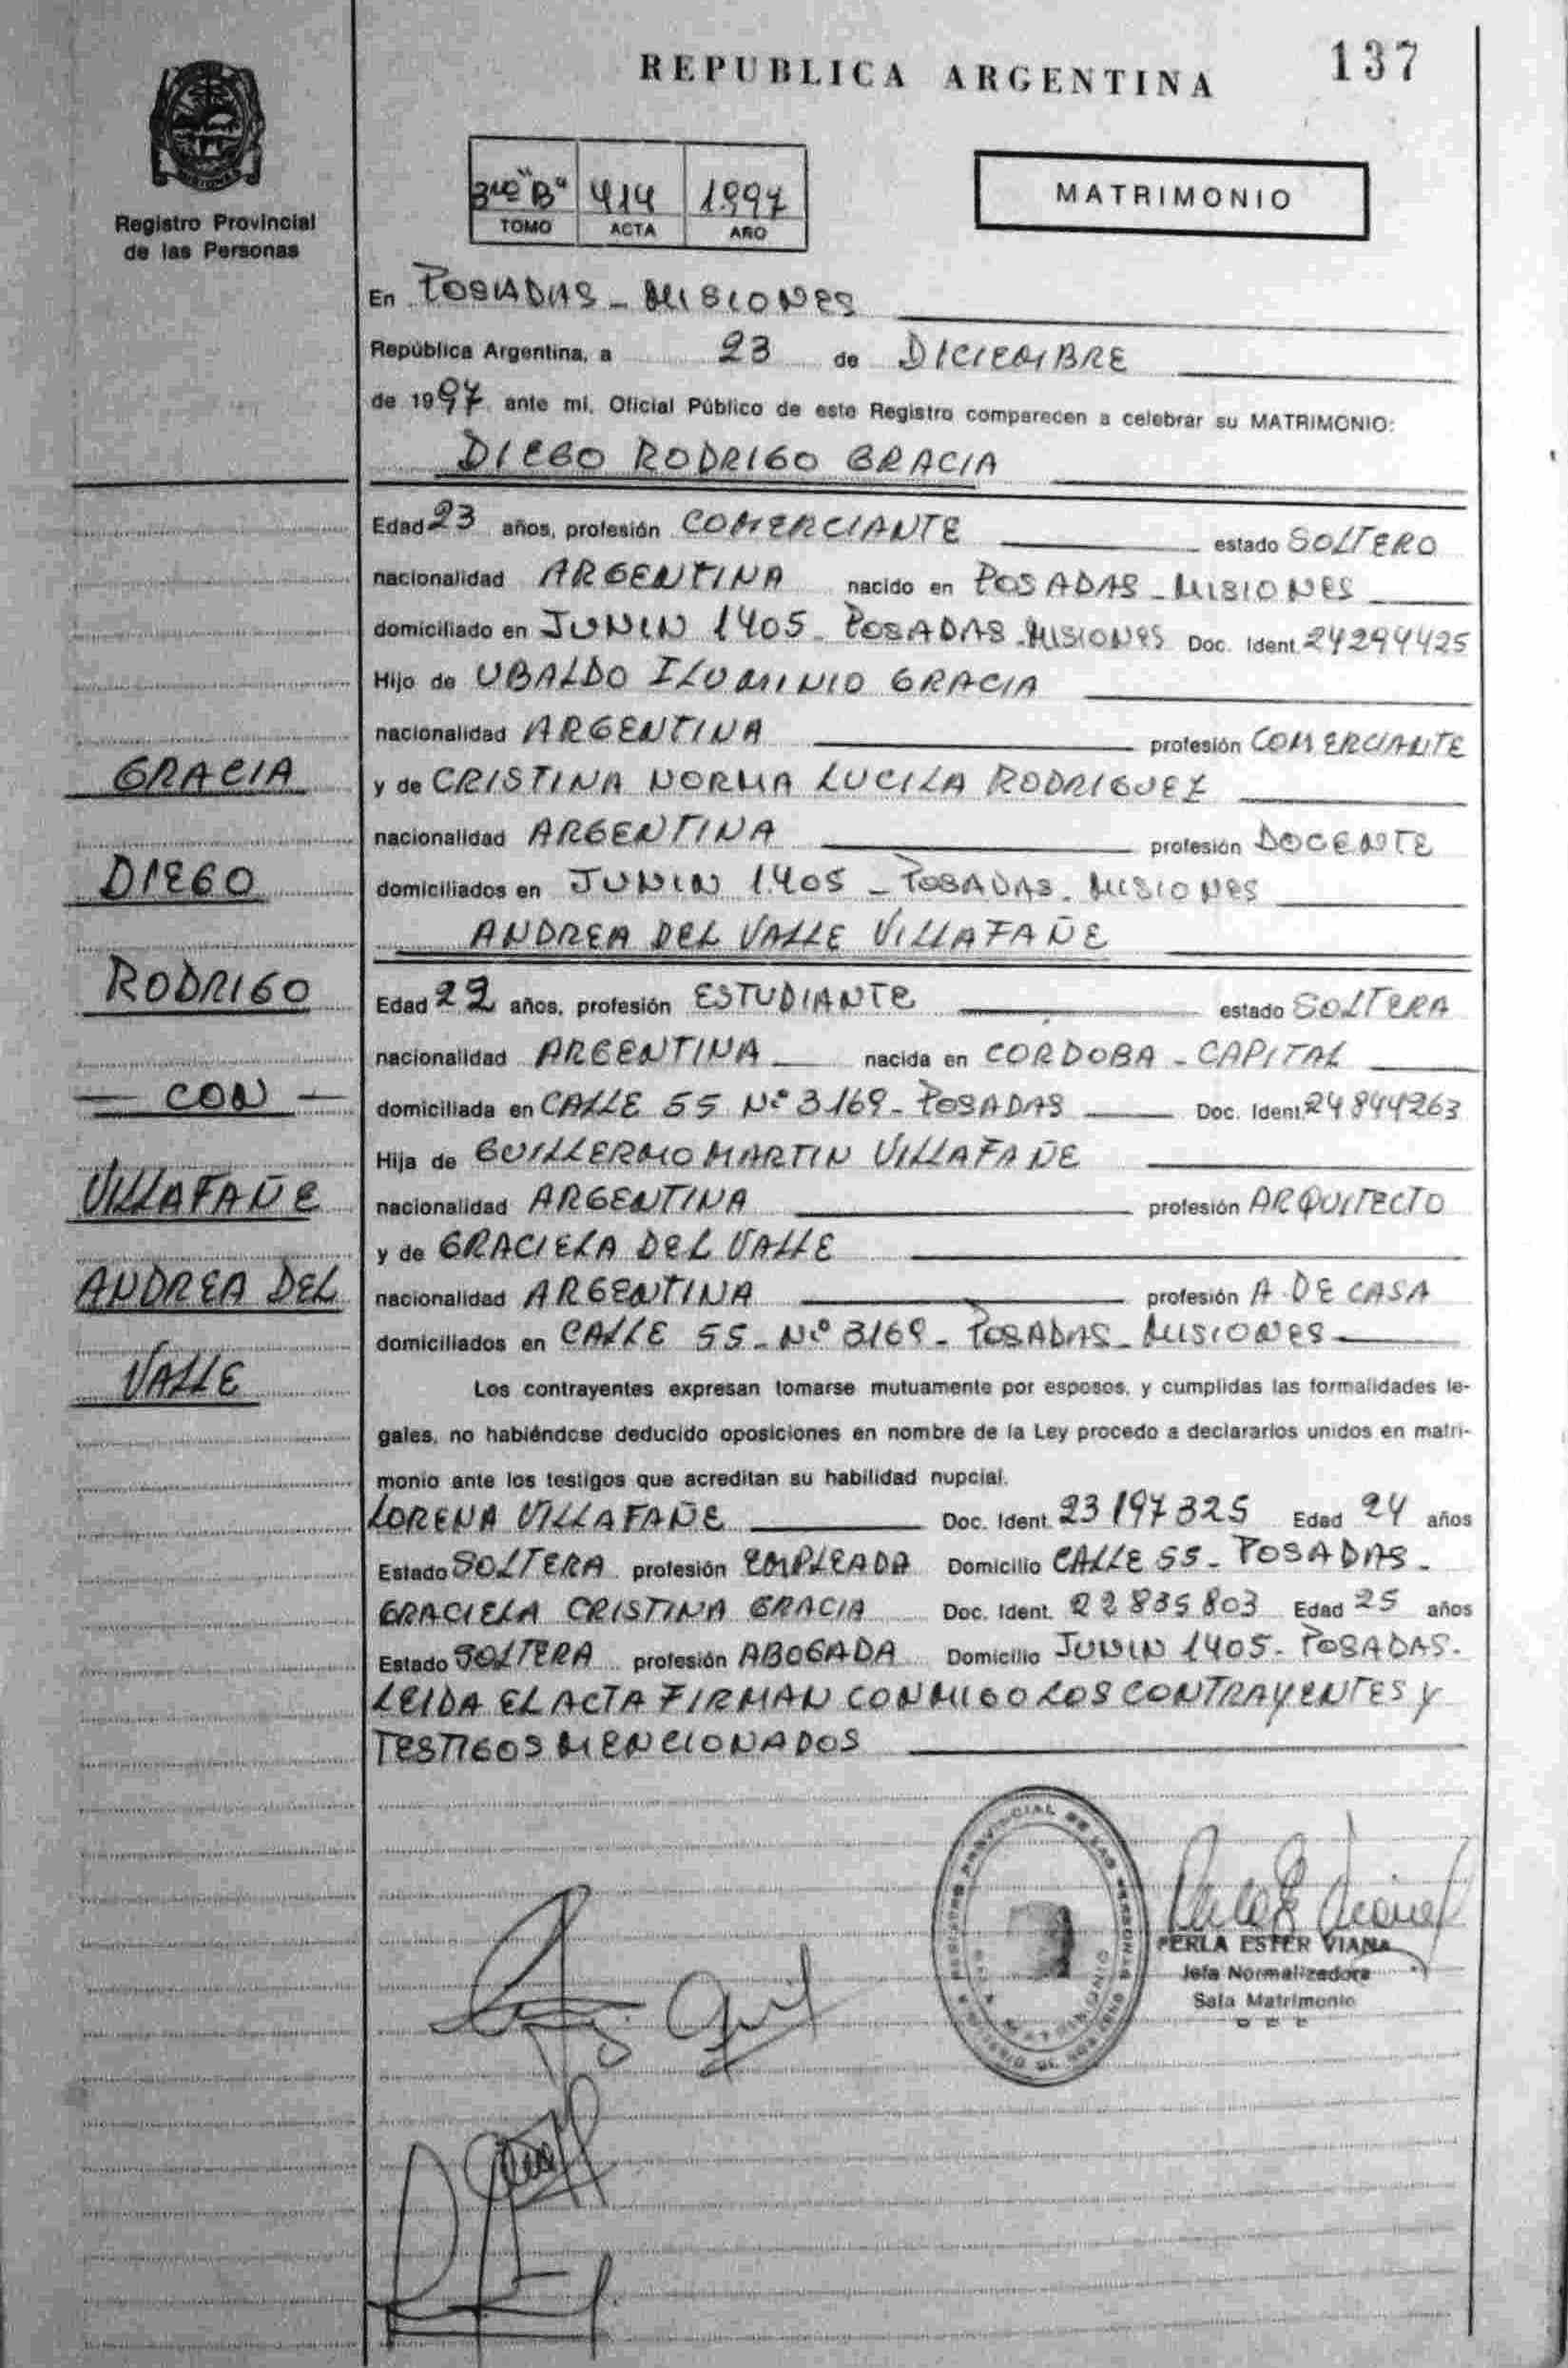 REPUBLICA ARGENTINA
137
Registro Provincial
de las Personas
3ro "B" 414 1.997
TOMO ACTA AÑO
MATRIMONIO
En POSADAS - MISIONES
República Argentina, a 23 de DICIEMBRE
de 1997 ante mi, Oficial Público de este Registro comparecen a celebrar su MATRIMONIO:
DIEGO RODRIGO GRACIA
Edad 23 años, profesión COMERCIANTE estado SOLTERO
nacionalidad ARGENTINA nacido en POSADAS - MISIONES
domiciliado en JUNIN 1405 - POSADAS - MISIONES Doc. Ident. 24294425
Hijo de UBALDO ILUMINIO GRACIA
nacionalidad ARGENTINA profesión COMERCIANTE
y de CRISTINA NORMA LUCILA RODRIGUEZ
nacionalidad ARGENTINA profesión DOCENTE
domiciliados en JUNIN 1.405 - POSADAS - MISIONES
ANDREA DEL VALLE VILLAFAÑE
Edad 22 años, profesión ESTUDIANTE estado SOLTERA
nacionalidad ARGENTINA nacida en CORDOBA - CAPITAL
domiciliada en CALLE 55 Nº 3169 - POSADAS Doc. Ident. 24844263
Hija de GUILLERMO MARTIN VILLAFAÑE
nacionalidad ARGENTINA profesión ARQUITECTO
y de GRACIELA DEL VALLE
nacionalidad ARGENTINA profesión A. DE CASA
domiciliados en CALLE 55 - Nº 3169 - POSADAS - MISIONES
Los contrayentes expresan tomarse mutuamente por esposos, y cumplidas las formalidades le-
gales, no habiéndose deducido oposiciones en nombre de la Ley procedo a declararlos unidos en matri-
monio ante los testigos que acreditan su habilidad nupcial.
LORENA VILLAFAÑE Doc. Ident. 23197325 Edad 24 años
Estado SOLTERA profesión EMPLEADA Domicilio CALLE 55 - POSADAS -
GRACIELA CRISTINA GRACIA Doc. Ident. 22835803 Edad 25 años
Estado SOLTERA profesión ABOGADA Domicilio JUNIN 1405 - POSADAS.
LEIDA EL ACTA FIRMAN CONMIGO LOS CONTRAYENTES Y
TESTIGOS MENCIONADOS
GRACIA
DIEGO
RODRIGO
- CON -
VILLAFAÑE
ANDREA DEL
VALLE
REGISTRO PROVINCIAL DE LAS PERSONAS
MATRIMONIO
PERLA ESTER VIANA
Jefa Normalizadora
Sala Matrimonio